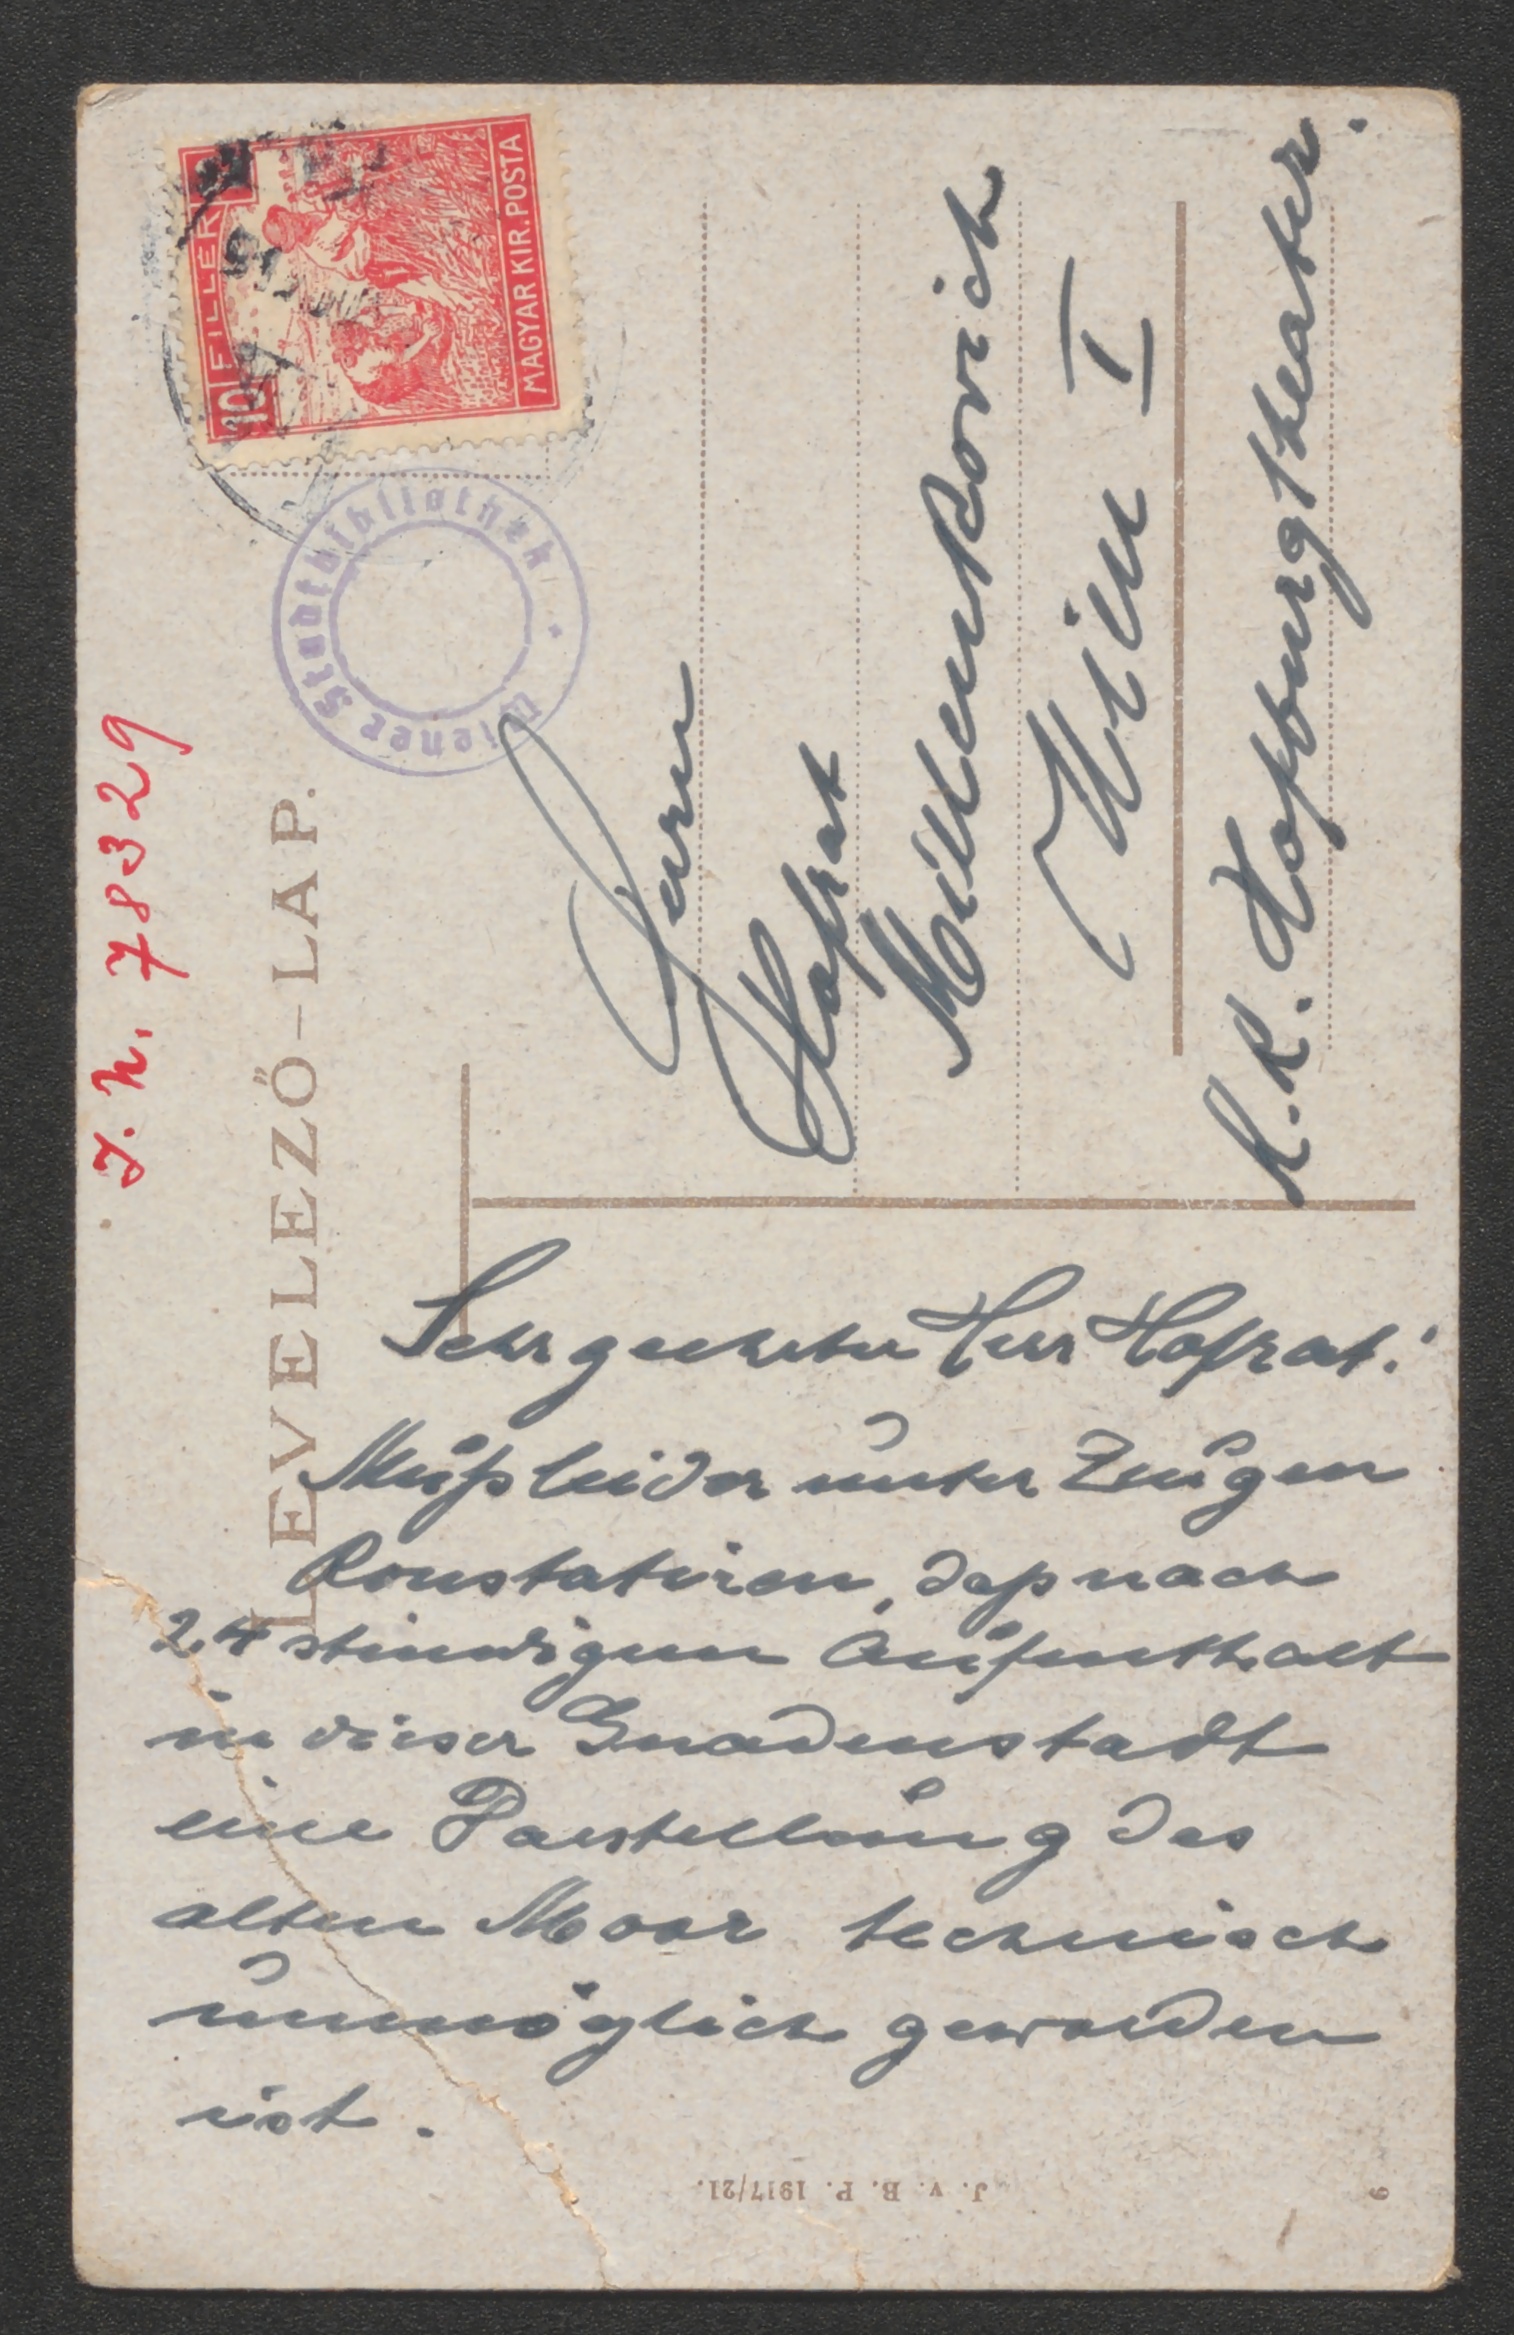 J. N. 78329
LEVELEZŐ-LAP.
10 FILLÉR
MAGYAR KIR. POSTA
Wiener Stadtbibliothek
Herrn
Hofrat
Millenkovich
Wien I
K. K. Hofburgtheater.
Sehr geehrter Herr Hofrat!
Muß leider unter Zeugen
konstatieren, daß nach
24 stündigem Aufenthalt
in dieser Gnadenstadt
eine Darstellung des
alten Moor technisch
unmöglich geworden
ist.
J. v. B. P. 1917/21.
9